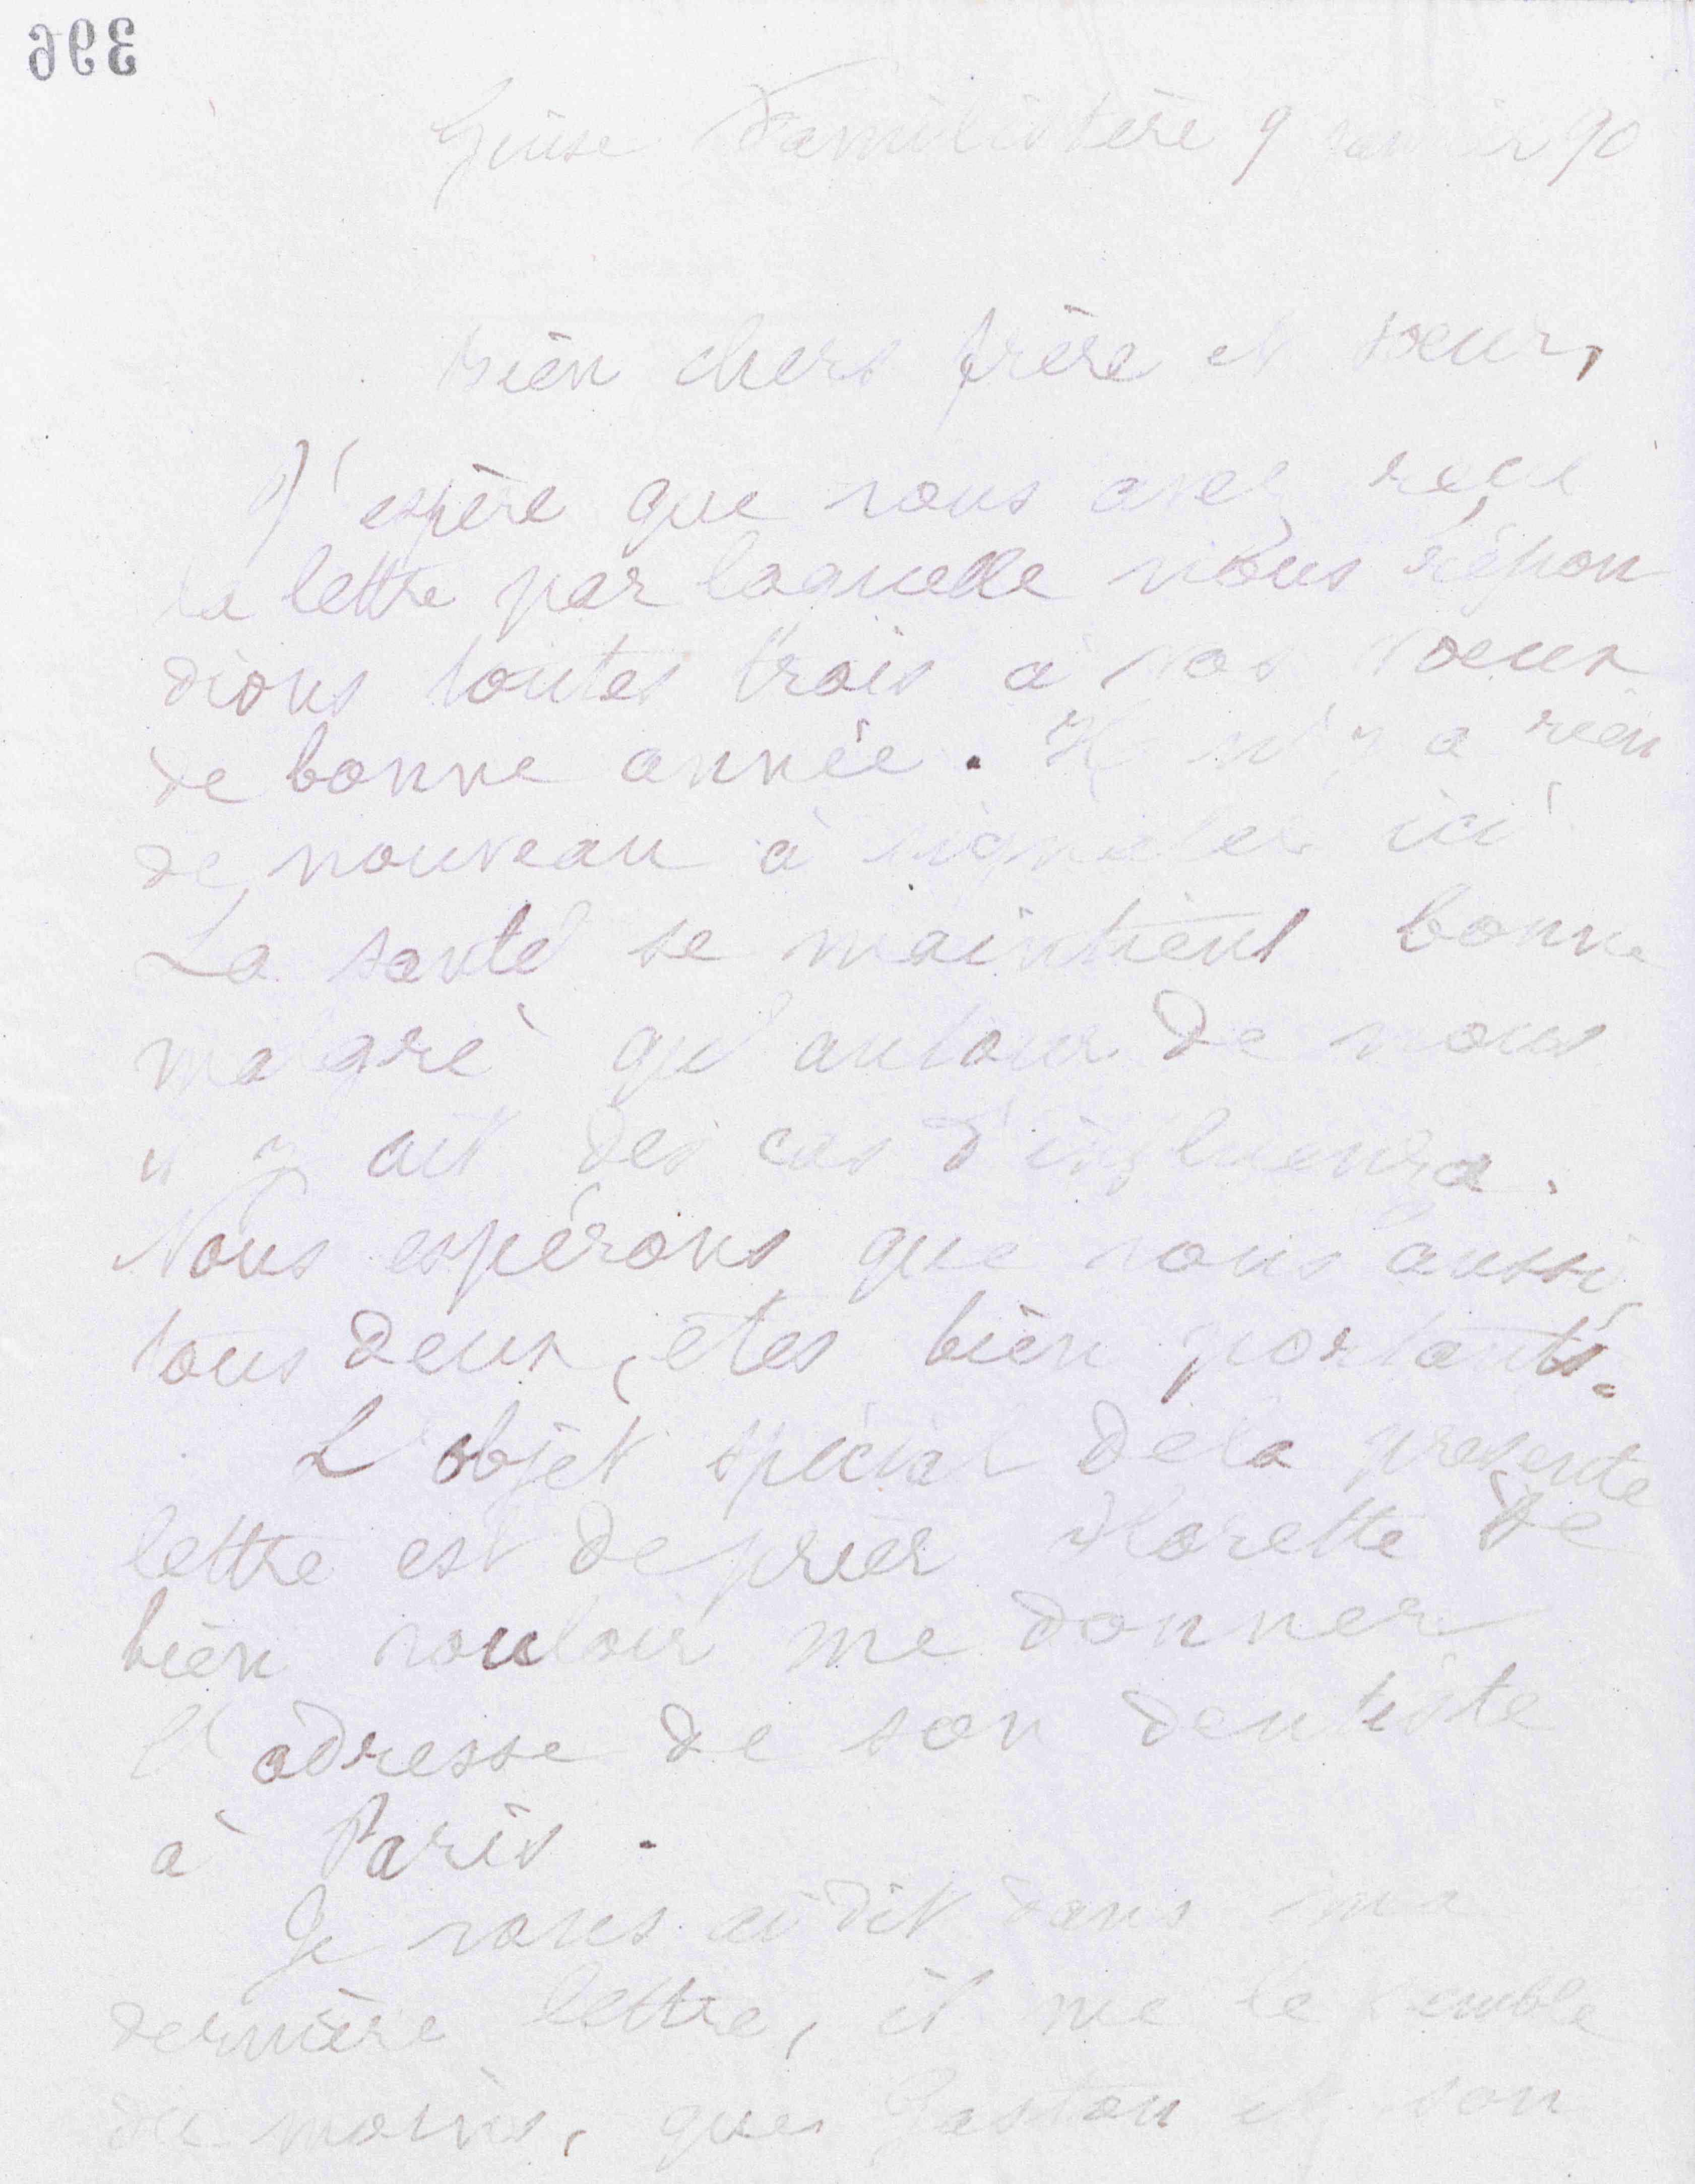 396
Guise Familistère 9 janvier 90
Bien chers frère et soeur,
J'espère que vous avez reçu
la lettre par laquelle nous répon
dions toutes trois à vos voeux
de bonne année. Il n'y a rien
de nouveau à signaler ici
La santé se maintient bonne
malgré qu'autour de nous
il y ait des cas d'influenza.
Nous espérons que vous aussi,
tous deux, êtes bien portants.
L'objet spécial de la présente
lettre est de prier Florette de
bien vouloir me donner
l'adresse de son dentiste
à Paris.
Je vous ai dit dans ma
dernière lettre, il me le semble
du moins, que Gaston et son